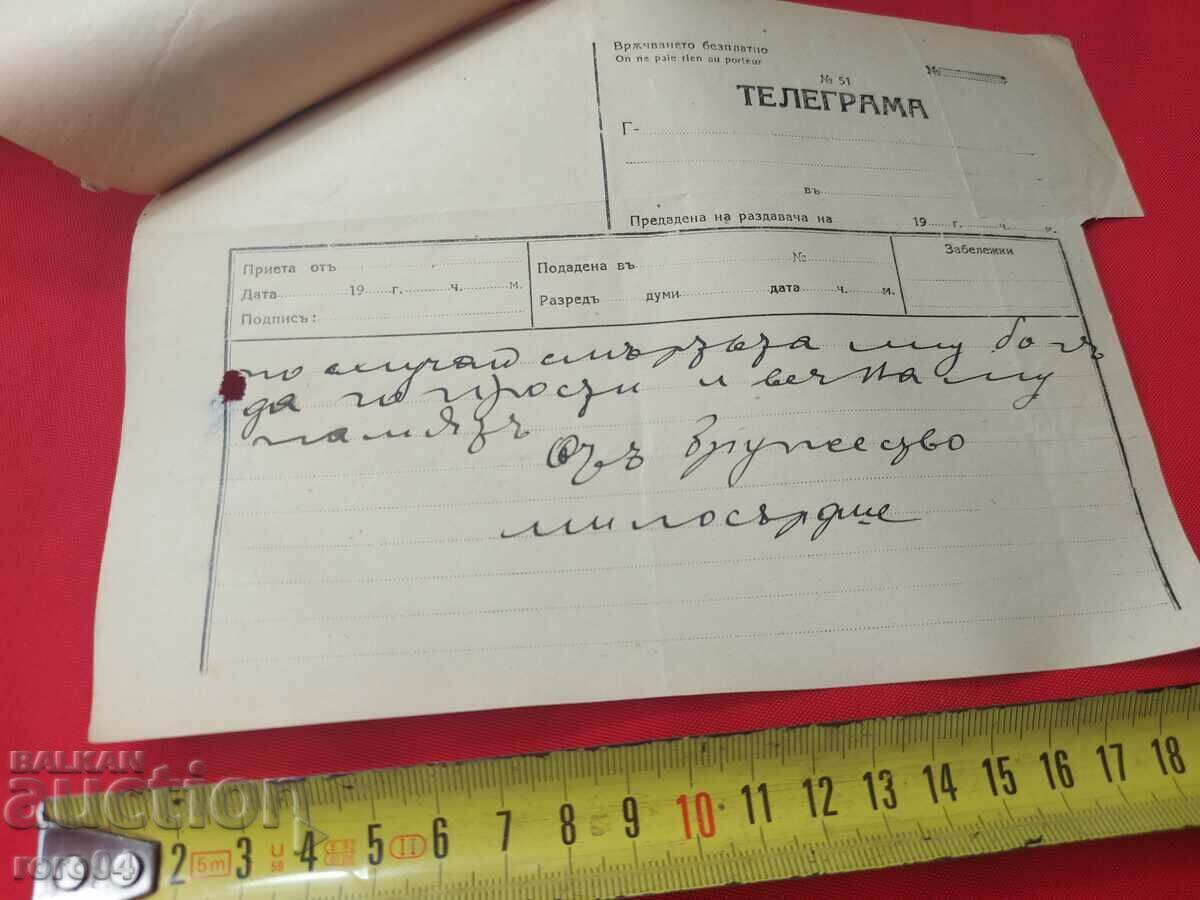 Врѫчването безплатно
On ne paie rien au porteur
№ 51
№
ТЕЛЕГРАМА
Г-
въ
Предадена на раздавача на 19 г. ч. м.
Приета отъ
Дата 19 г. ч. м.
Подписъ:
Подадена въ №
Разредъ думи дата ч. м.
Забележки
по случай смъртьта му богъ
да го прости и вечна му
памятъ
Отъ дружество
милосърдие
BALKAN
auction
roro04
2 5m 3 4 5 II 6 7 8 9 10 11 12 13 14 15 16 17 18